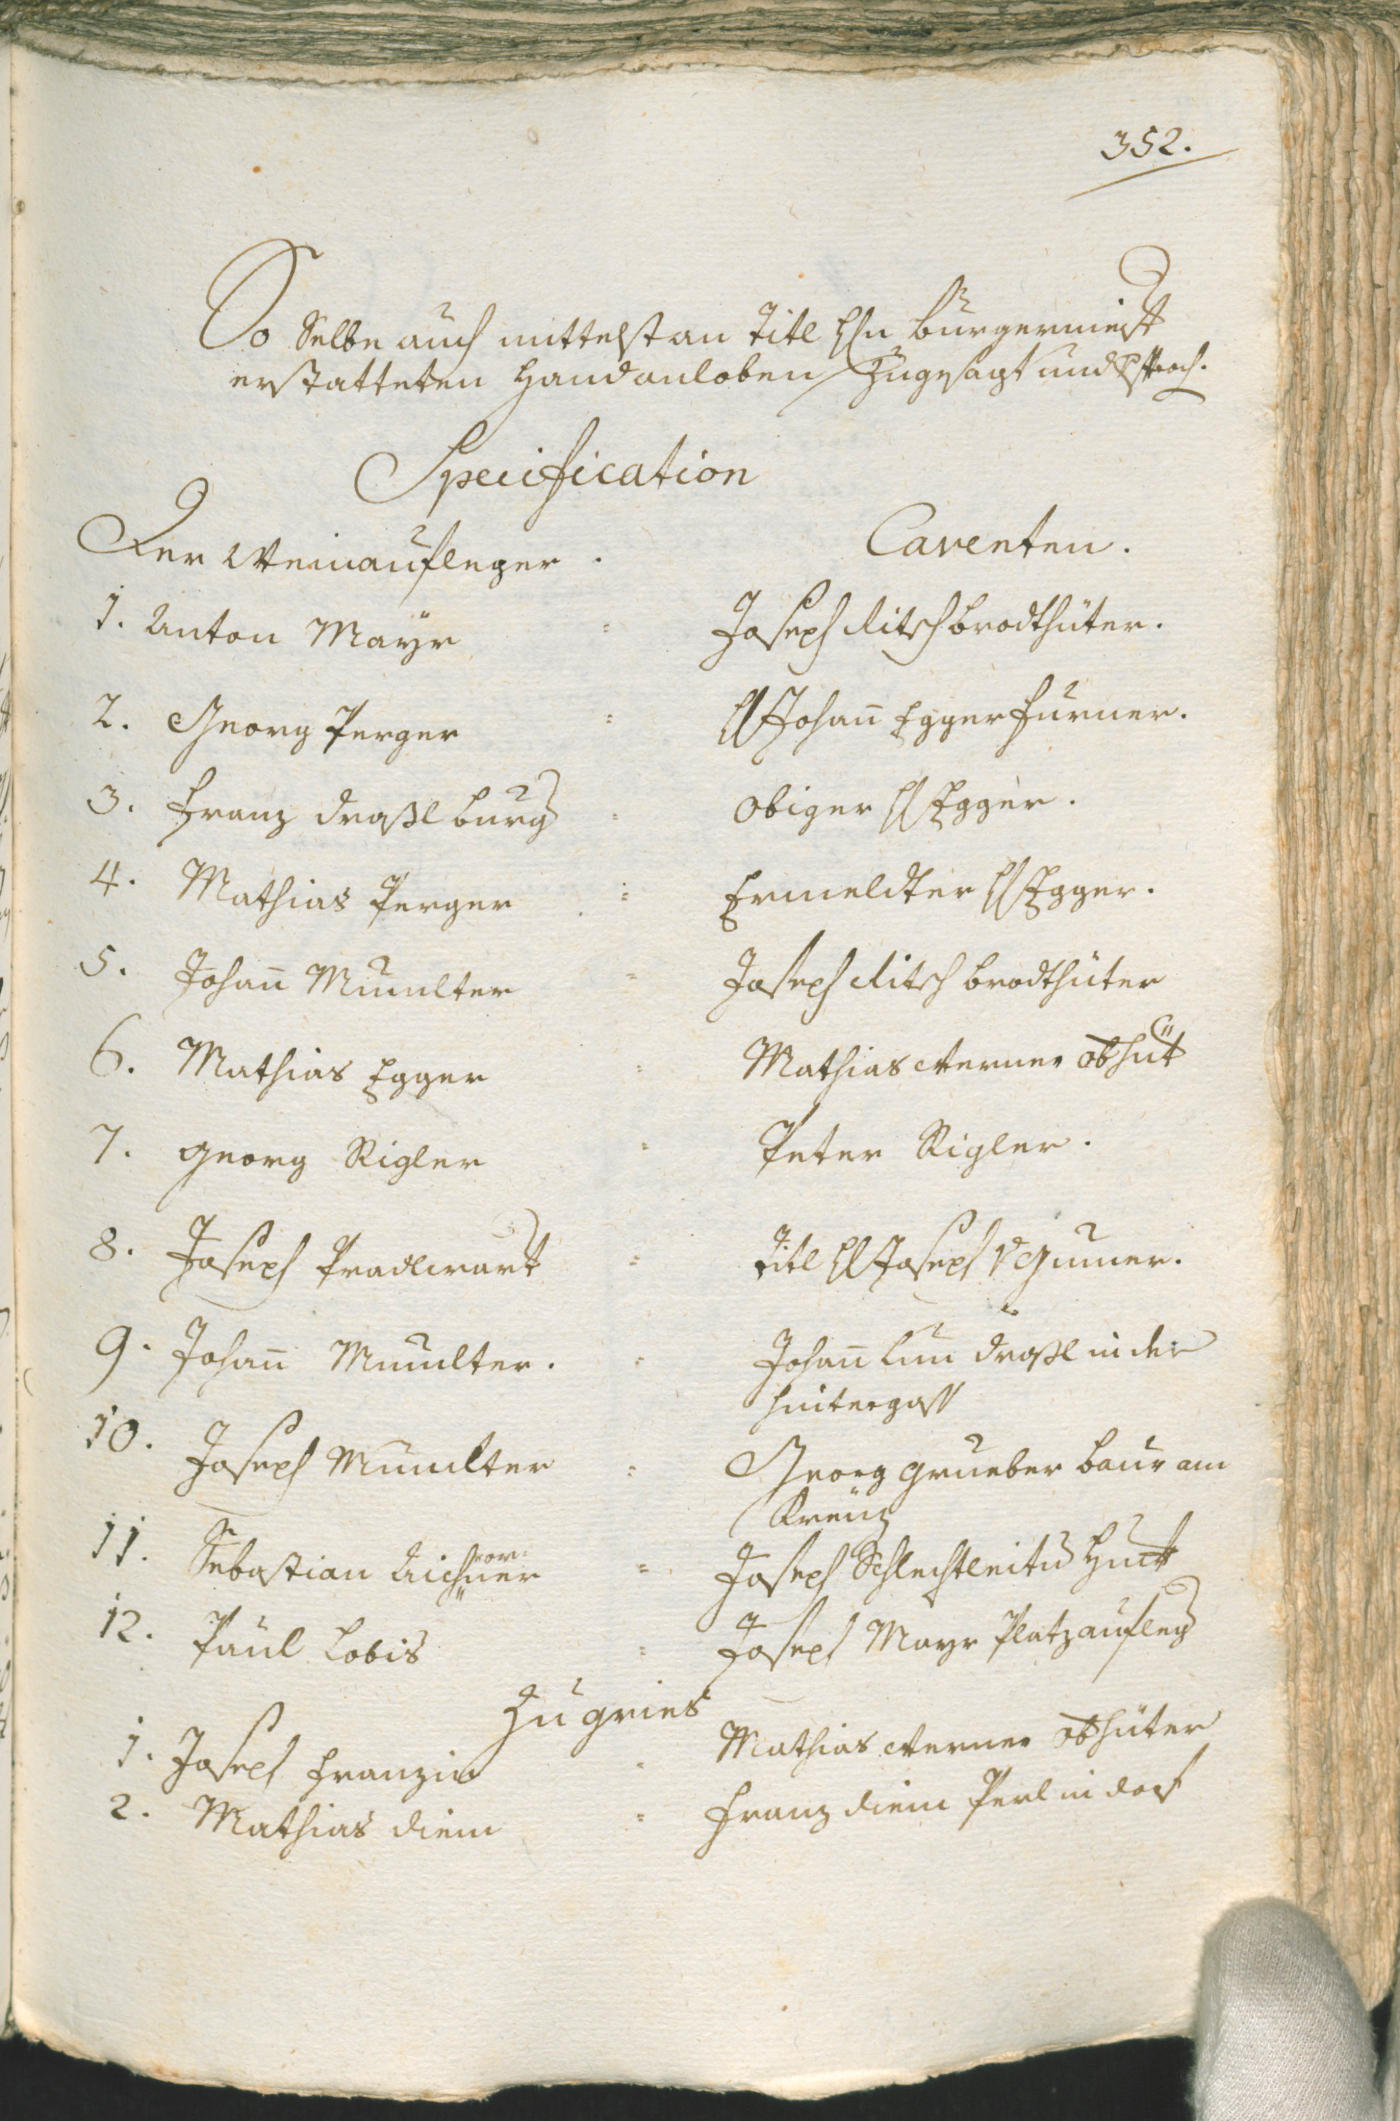 352.
So Selbe auch mittelst an Titl H: Burgermeist
erstatteten Handanloben zugesagt und
Specification
Der Weinaufleger.
Caventen.
1. Anton Mayr = Joseph Ritsch brodthüter.
2. Georg Perger = H: Johann Egger furner.
3. Franz draßl burg = obiger H: Egger.
4. Mathias Perger = Ermeldter H: Egger.
5. Johann Muulter = Joseph Ritsch brodthüter
6. Mathias Egger = Mathias Werner obhüt
7. Georg Rigler = Peter Rigler.
8. Joseph Pradlwart = Titl H: Joseph v Gumer.
9. Johann Muulter. = Johann Lun draßl in der
Hintergass
10. Joseph Muulter = Georg grueber baur am
Kreuz
11. Sebastian Aichner = Joseph Schlechtleitn
12. Paul Lobis = Joseph Mayr Platzaufleg
Zu gries
1. Joseph Franzin = Mathias Werner obhüter
2. Mathias diem = Franz diem Perl in dorf